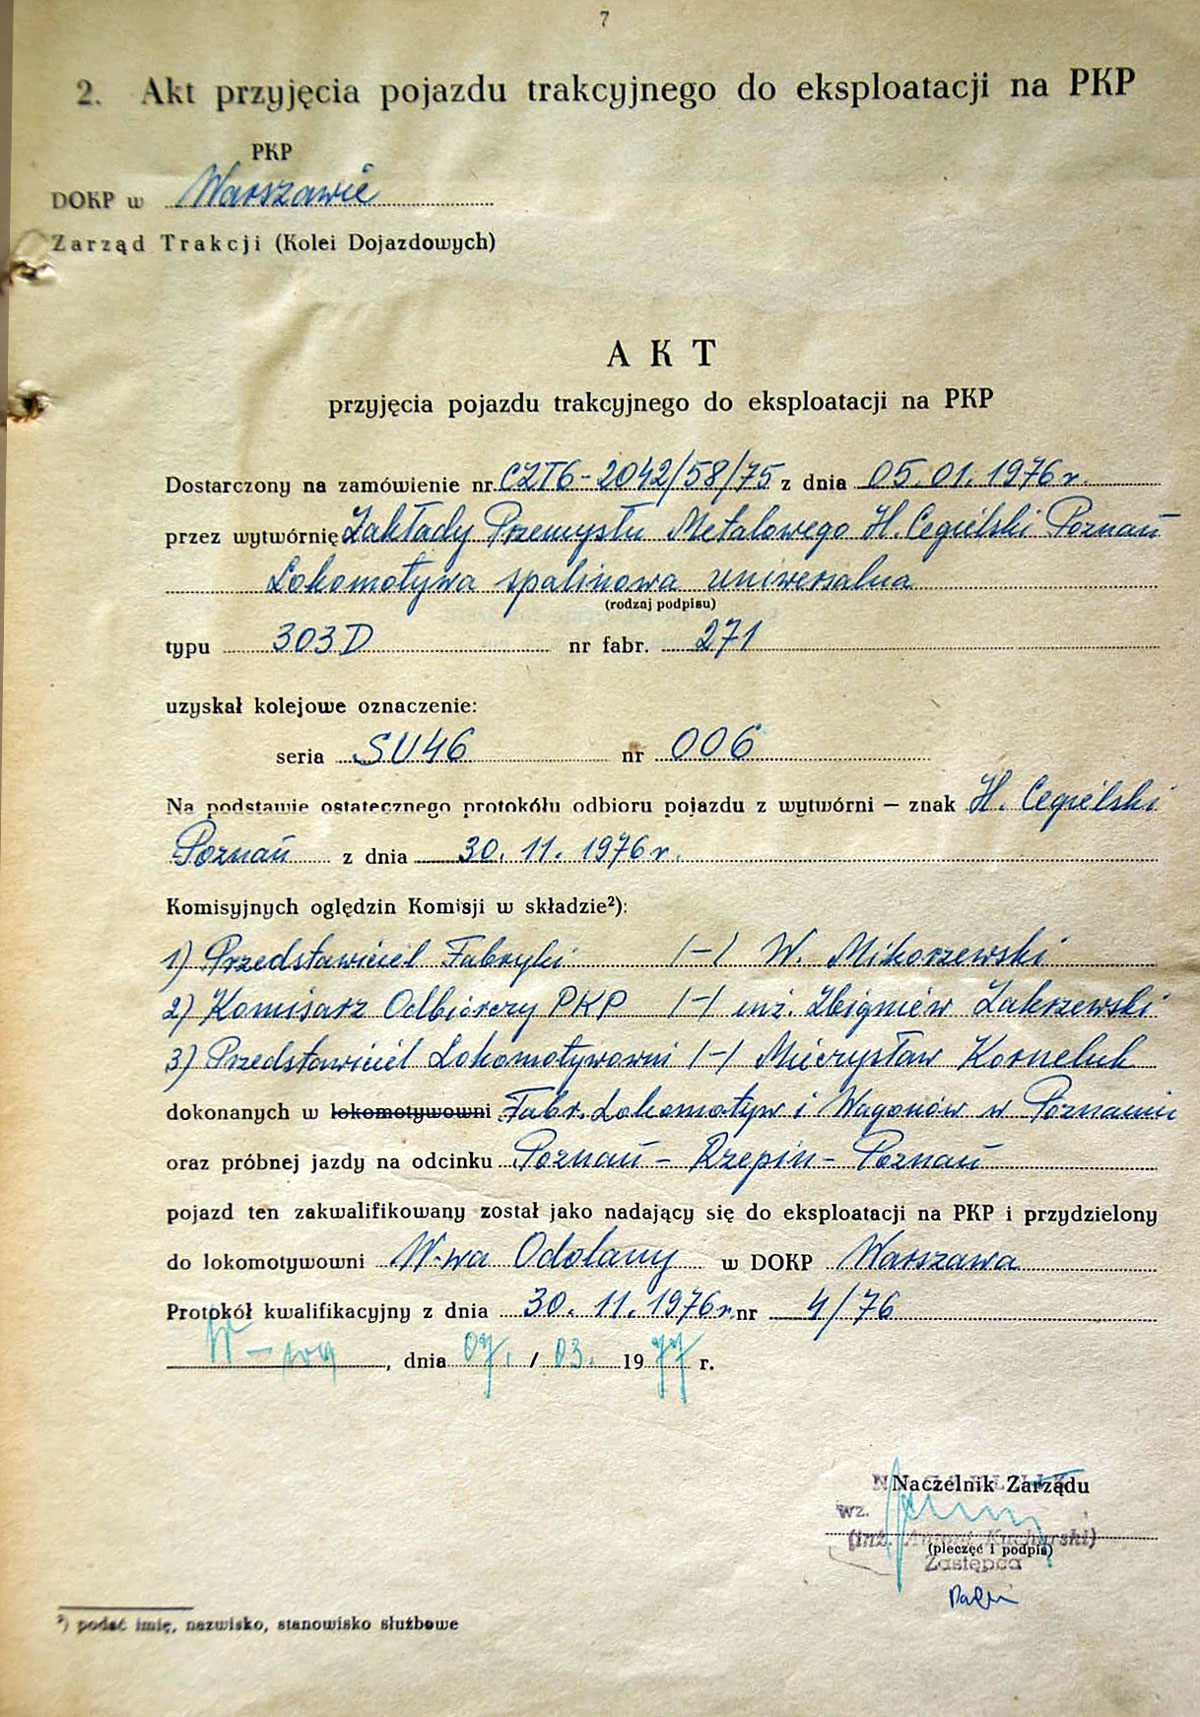 7
2. Akt przyjęcia pojazdu trakcyjnego do eksploatacji na PKP
PKP
DOKP w Warszawie
Zarząd Trakcji (Kolei Dojazdowych)
AKT
przyjęcia pojazdu trakcyjnego do eksploatacji na PKP
Dostarczony na zamówienie nr CZT6-2042/58/75 z dnia 05.01.1976r.
przez wytwórnię Zakłady Przemysłu Metalowego H. Cegielski Poznań
Lokomotywa spalinowa uniwersalna
(rodzaj podpisu)
typu 303D nr fabr. 271
uzyskał kolejowe oznaczenie:
seria SU46 nr 006
Na podstawie ostatecznego protokółu odbioru pojazdu z wytwórni – znak H. Cegielski
Poznań z dnia 30.11.1976r.
Komisyjnych oględzin Komisji w składzie²):
1) Przedstawiciel Fabryki /-/ W. Mikorzewski
2) Komisarz Odbiorczy PKP /-/ inż. Zbigniew Zakrzewski
3) Przedstawiciel Lokomotywowni /-/ Mieczysław Korneluk
dokonanych w lokomotywowni Fabr. Lokomotyw i Wagonów w Poznaniu
oraz próbnej jazdy na odcinku Poznań - Rzepin - Poznań
pojazd ten zakwalifikowany został jako nadający się do eksploatacji na PKP i przydzielony
do lokomotywowni W-wa Odolany w DOKP Warszawa
Protokół kwalifikacyjny z dnia 30.11.1976r. nr 4/76
W-wa, dnia 07. / 03. 1977 r.
Naczelnik Zarządu
wz.
(inż. Kucharski)
(pieczęć i podpis)
Zastępca
²) podać imię, nazwisko, stanowisko służbowe